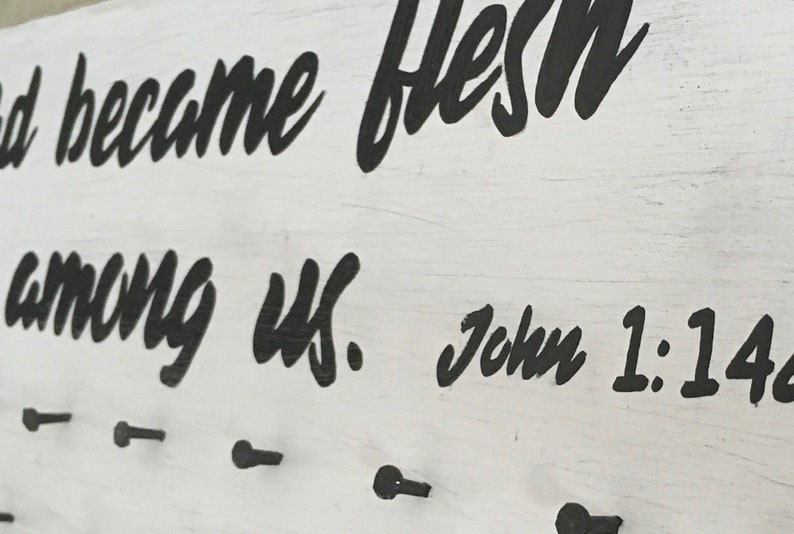 became flesh
among us.
John 1:14a